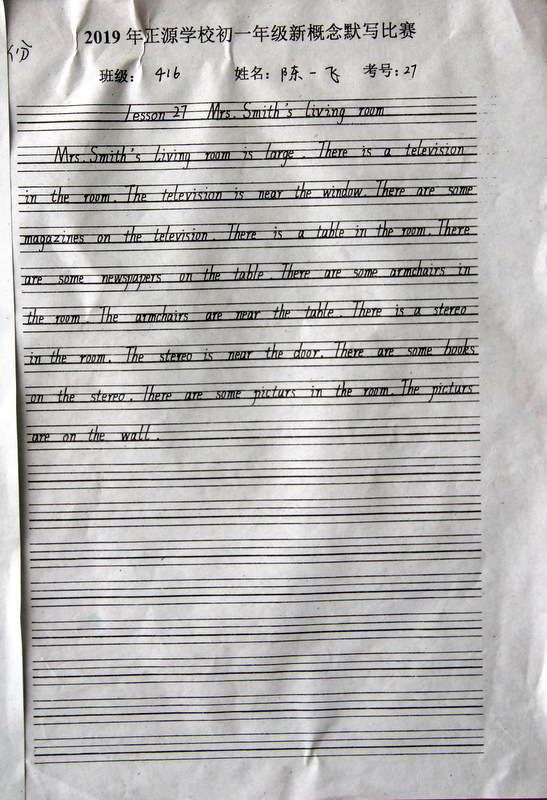 2019 年正源学校初一年级新概念默写比赛
份
班级： 416 姓名：陈一飞 考号：27
Lesson 27 Mrs. Smith's living room
Mrs. Smith's living room is large. There is a television
in the room. The television is near the window. There are some
magazines on the television. There is a table in the room. There
are some newspapers on the table. There are some armchairs in
the room. The armchairs are near the table. There is a stereo
in the room. The stereo is near the door. There are some books
on the stereo. There are some picturs in the room. The picturs
are on the wall.